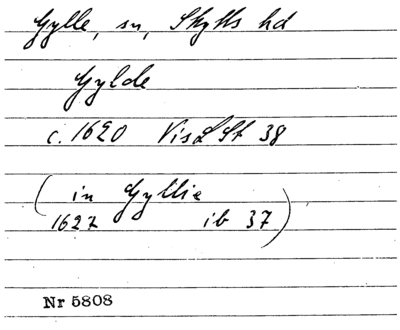 Gylle, sn, Skytts hd
Gylde
c. 1620 VisLSt 38
(in Gyllie
1627 ib 37)
Nr 5808